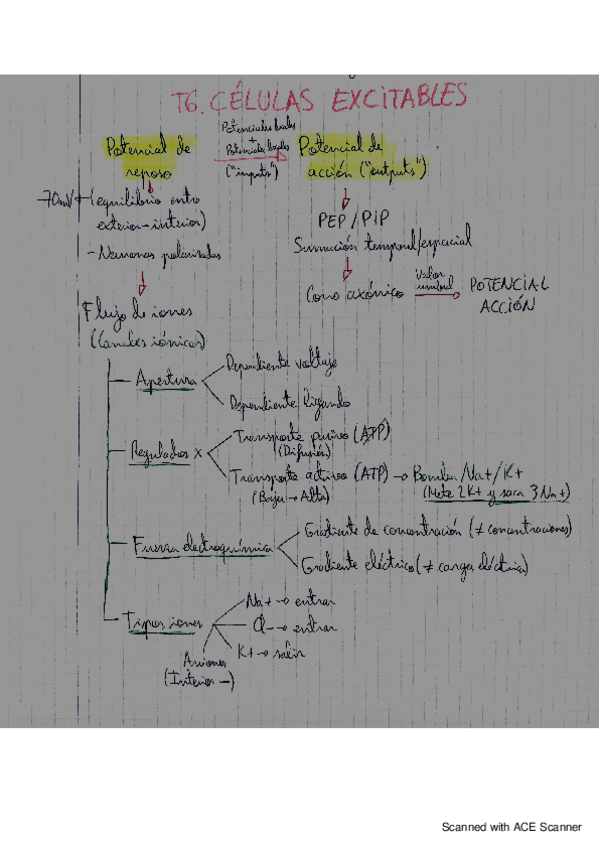 T6. CÉLULAS EXCITABLES
Potencial de
reposo
Potenciales locales
+
Potenciales locales
("inputs")
Potencial de
acción ("outputs")
-70mV
(equilibrio entre
exterior-interior)
- Neuronas polarizadas
Flujo de iones
(Canales iónicos)
PEP/PIP
Sumación temporal/espacial
Cono axónico
Valor
umbral
POTENCIAL
ACCIÓN
Apertura
Dependiente voltaje
Dependiente ligando
Regulados x
Transporte pasivo (ATP)
(Difusión)
Transporte activo (ATP) → Bomba Na+/K+
(Baja → Alta)
(Mete 2K+ y saca 3Na+)
Fuerza electroquímica
Gradiente de concentración (≠ concentraciones)
Gradiente eléctrico (≠ carga eléctrica)
Tipos iones
Na+ → entrar
Cl- → entrar
K+ → salir
Aniones
(Interior -)
Scanned with ACE Scanner